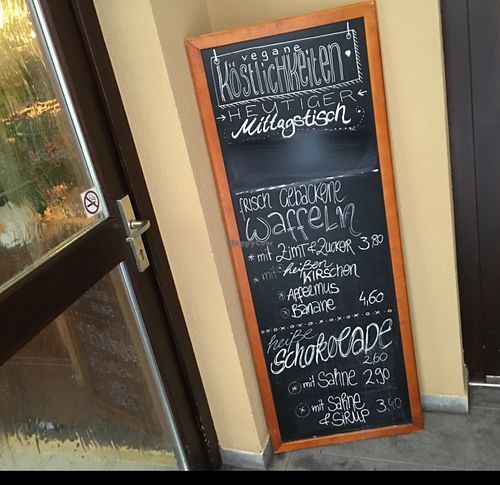 vegane
Köstlichkeiten
HEUTIGER
Mittagstisch
frisch gebackene
Waffeln
* mit Zimt & Zucker 3,80
* mit heißen
Kirschen
* Apfelmus
* Banane 4,60
heiße
Schokolade
2,60
* mit Sahne 2,90
* mit Sahne
& Sirup 3,40